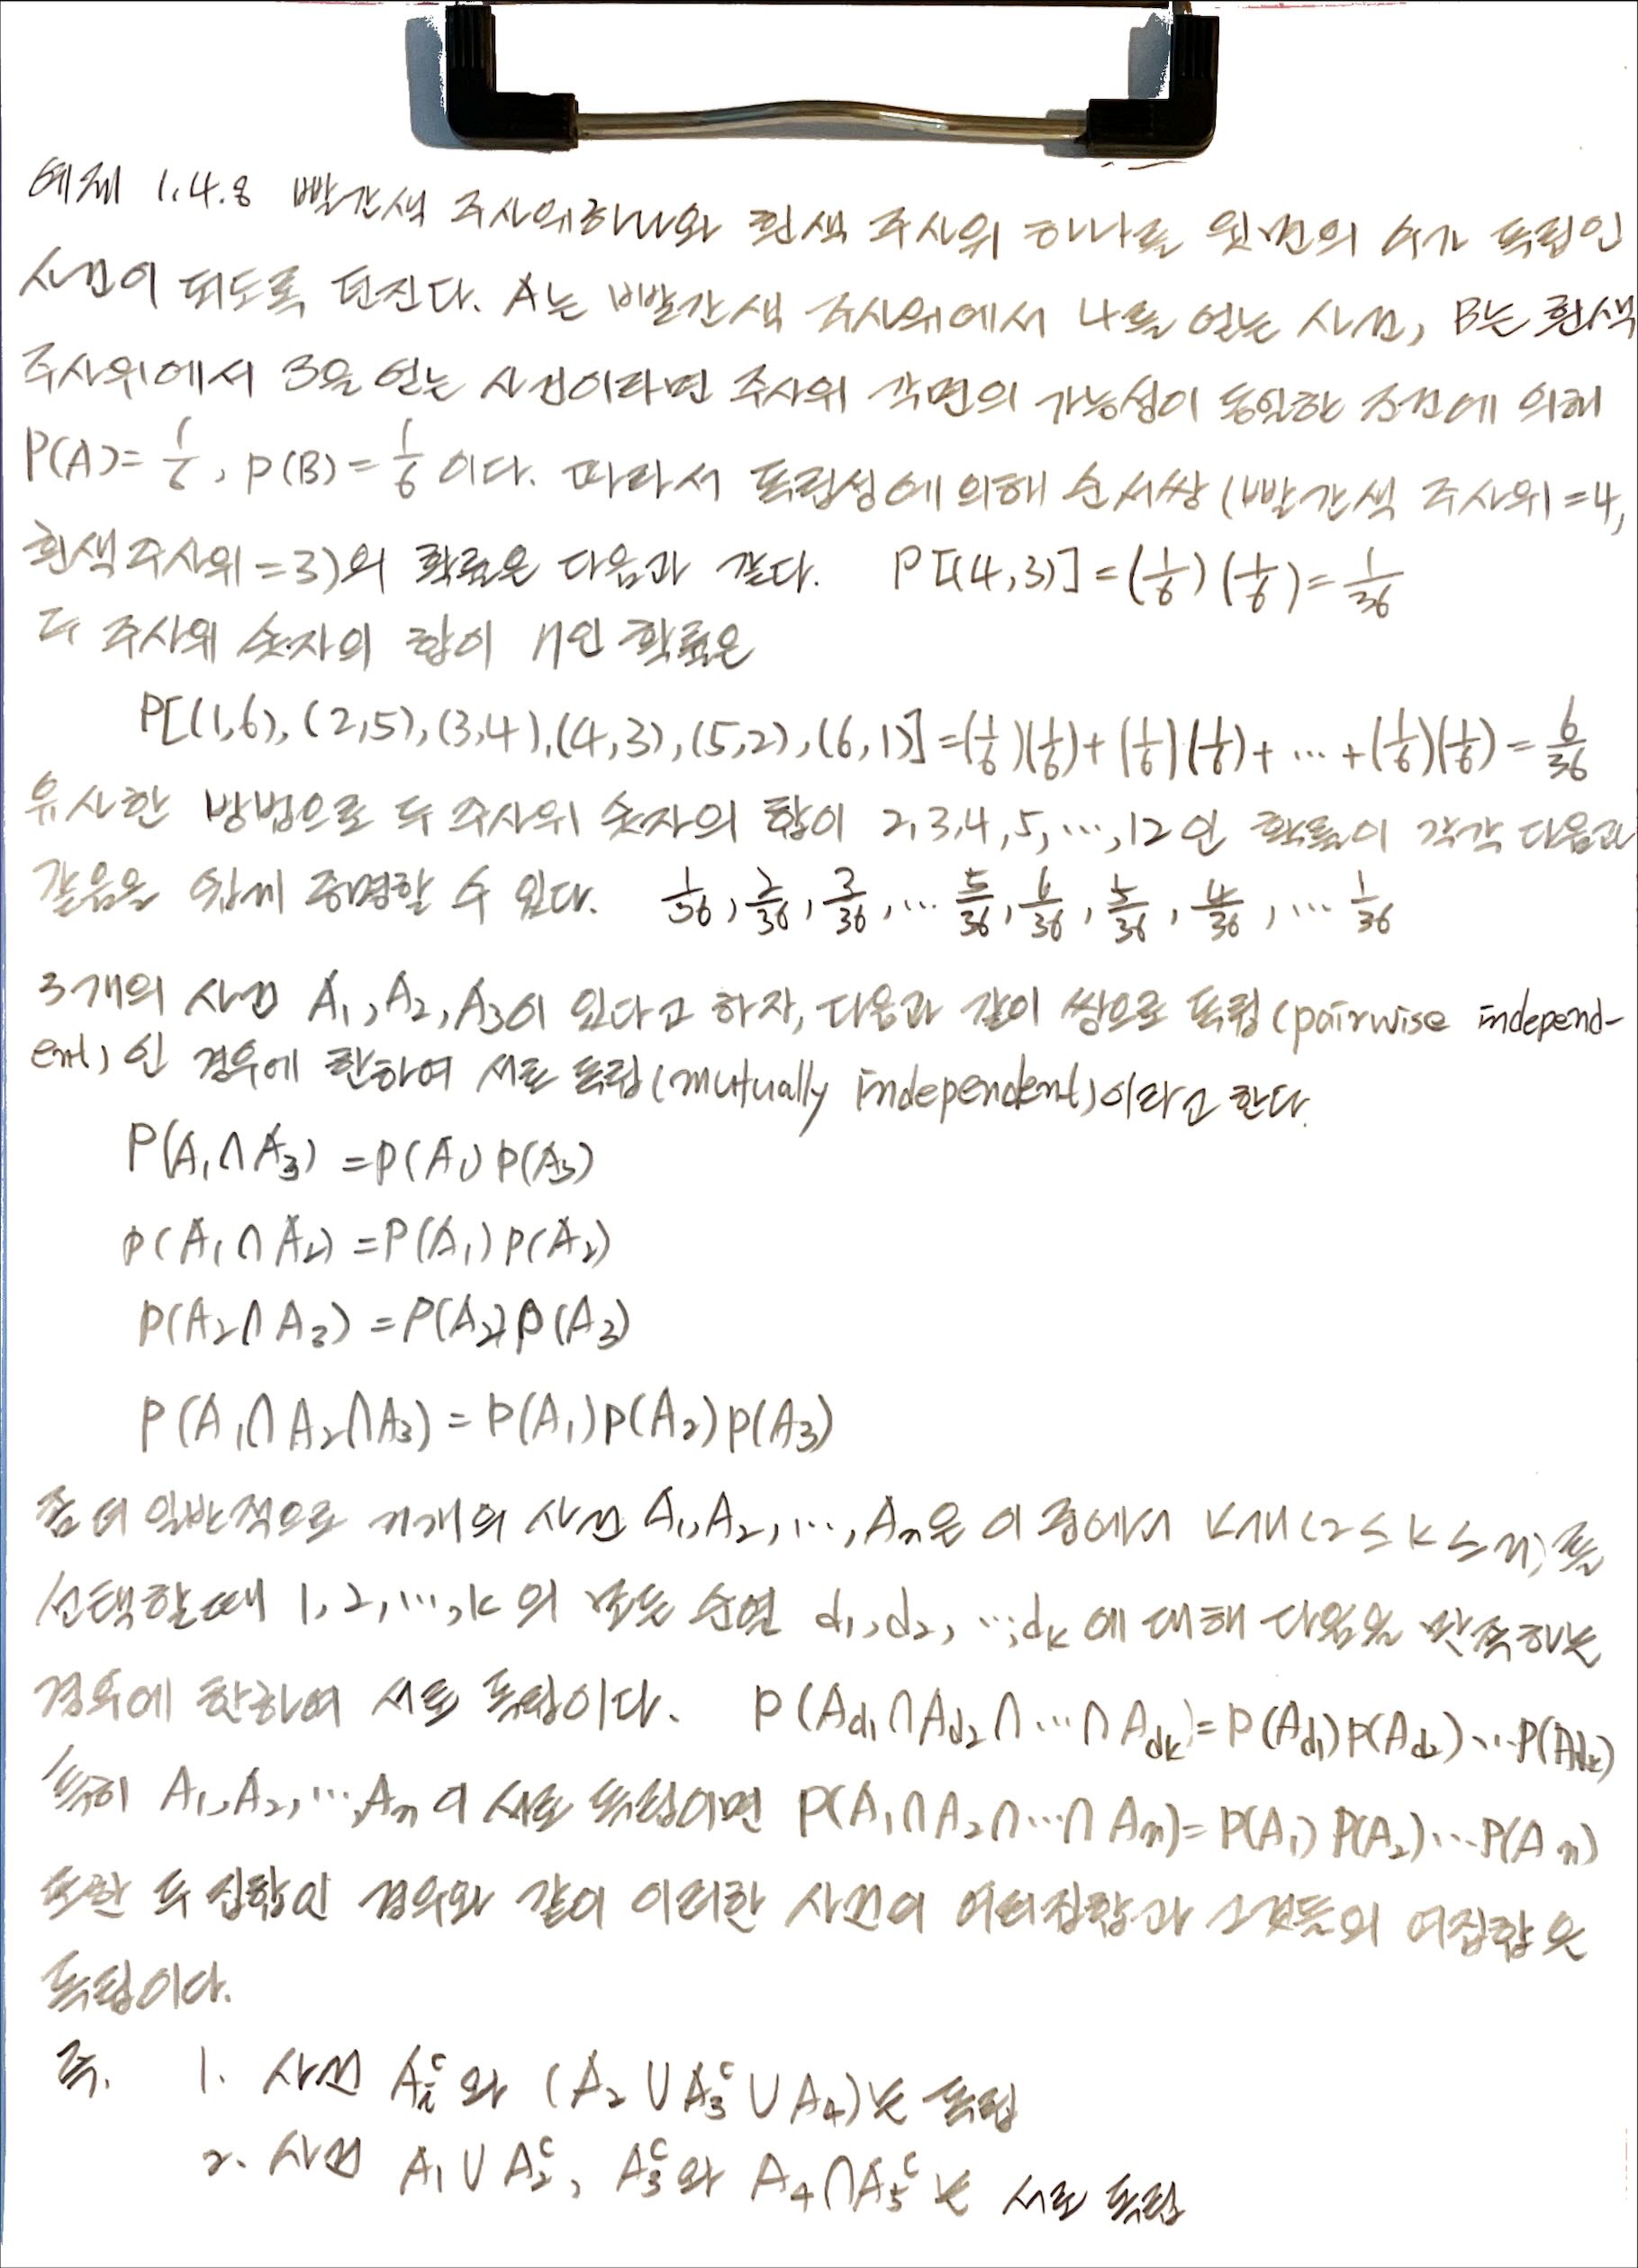 예제 1.4.8 빨간색 주사위 하나와 흰색 주사위 하나를 윗면의 수가 독립인
사건이 되도록 던진다. A는 빨간색 주사위에서 4를 얻는 사건, B는 흰색
주사위에서 3을 얻는 사건이라면 주사위 각면의 가능성이 동일한 조건에 의해
P(A)=1/6, P(B)=1/6 이다. 따라서 독립성에 의해 순서쌍 (빨간색 주사위=4,
흰색 주사위=3)의 확률은 다음과 같다. P[(4,3)]=(1/6)(1/6)=1/36
두 주사위 숫자의 합이 7인 확률은
P[(1,6),(2,5),(3,4),(4,3),(5,2),(6,1)]=(1/6)(1/6)+(1/6)(1/6)+…+(1/6)(1/6)=6/36
유사한 방법으로 두 주사위 숫자의 합이 2,3,4,5,…,12인 확률이 각각 다음과
같음을 쉽게 증명할 수 있다. 1/36, 2/36, 3/36, … 5/36, 6/36, 5/36, 4/36, … 1/36
3개의 사건 A₁, A₂, A₃이 있다고 하자, 다음과 같이 쌍으로 독립(pairwise independ-
ent)인 경우에 한하여 서로 독립(mutually independent)이라고 한다.
P(A₁∩A₃)=P(A₁)P(A₃)
P(A₁∩A₂)=P(A₁)P(A₂)
P(A₂∩A₃)=P(A₂)P(A₃)
P(A₁∩A₂∩A₃)=P(A₁)P(A₂)P(A₃)
좀 더 일반적으로 n개의 사건 A₁,A₂,…,Aₙ은 이 중에서 k개(2≤k≤n)를
선택할 때 1,2,…,k의 모든 순열 d₁,d₂,…,dₖ에 대해 다음을 만족하는
경우에 한하여 서로 독립이다. P(Ad₁∩Ad₂∩…∩Adₖ)=P(Ad₁)P(Ad₂)…P(Adₖ)
특히 A₁,A₂,…,Aₙ이 서로 독립이면 P(A₁∩A₂∩…∩Aₙ)=P(A₁)P(A₂)…P(Aₙ)
또한 두 집합인 경우와 같이 이러한 사건의 여러집합과 그것들의 여집합은
독립이다.
즉, 1. 사건 A₁ᶜ와 (A₂∪A₃ᶜ∪A₄)는 독립
2. 사건 A₁∪A₂ᶜ, A₃ᶜ와 A₄∩A₅ᶜ는 서로 독립